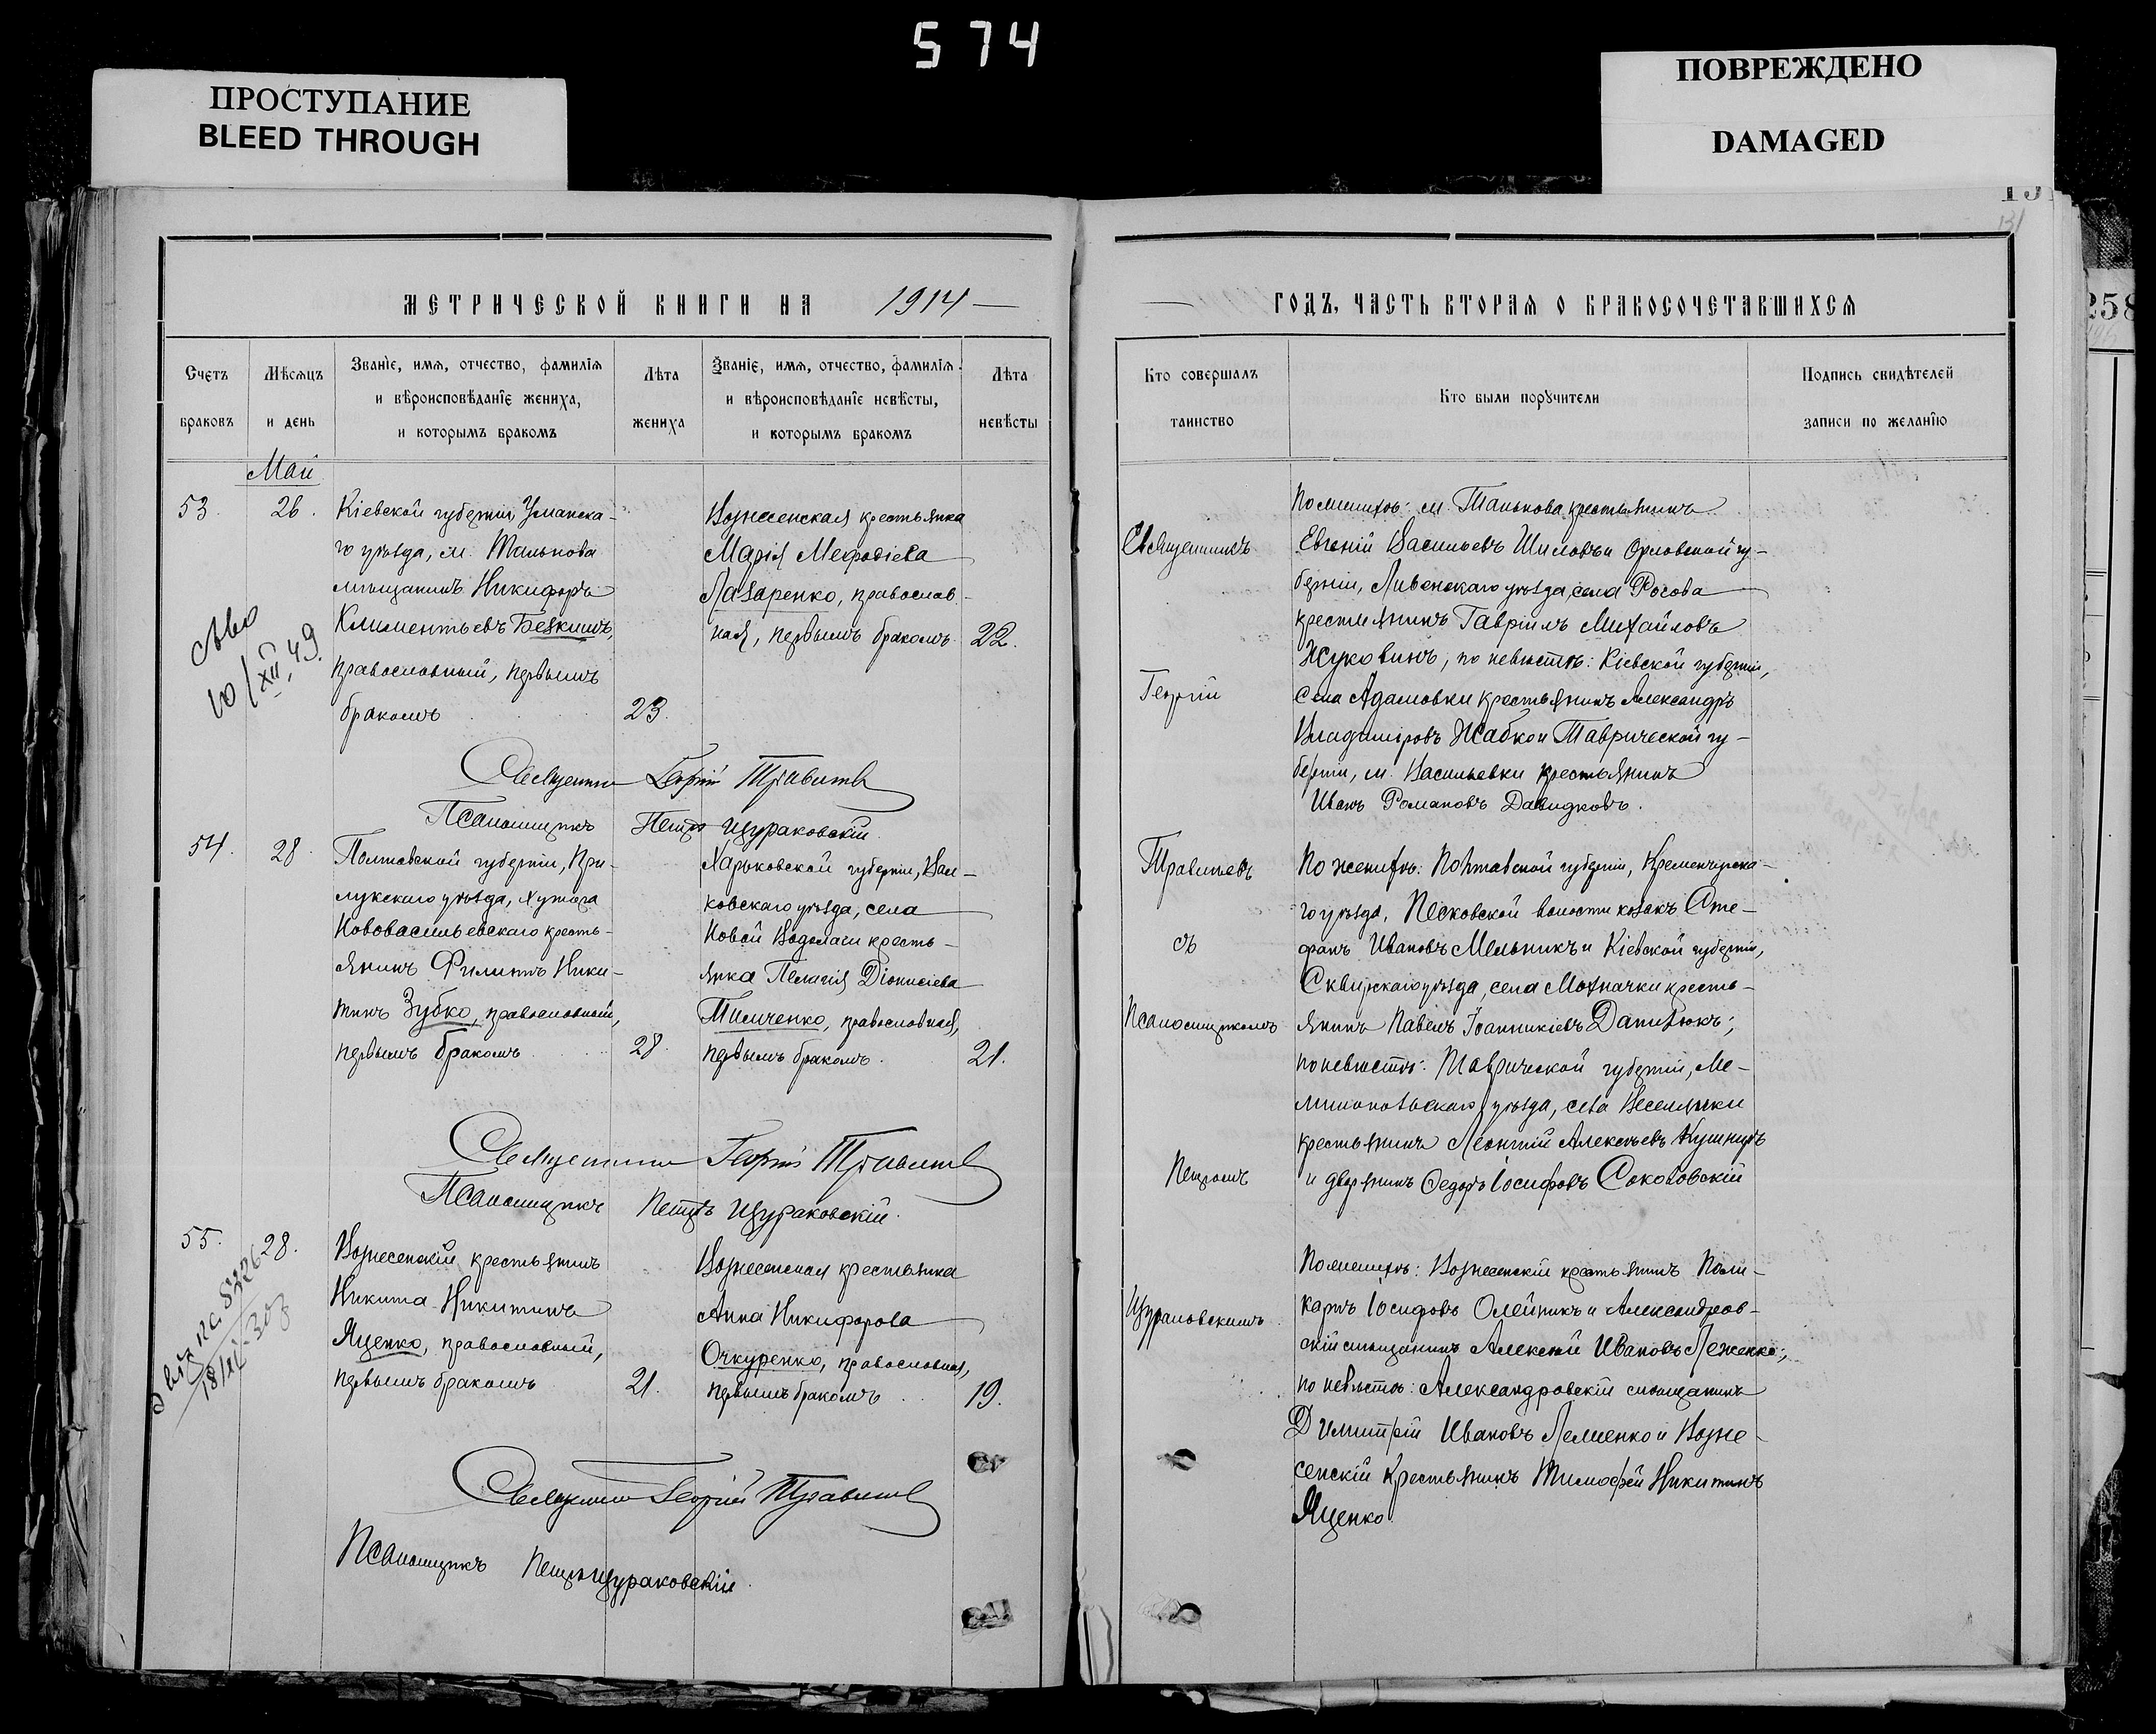 574
ПРОСТУПАНИЕ
BLEED THROUGH
ПОВРЕЖДЕНО
DAMAGED
131
258
МЕТРИЧЕСКОЙ КНИГИ НА 1914
ГОДЪ, ЧАСТЬ ВТОРАЯ О БРАКОСОЧЕТАВШИХСЯ
Счетъ
браковъ
Мѣсяцъ
и день
Званіе, имя, отчество, фамилія
и вѣроисповѣданіе жениха,
и которымъ бракомъ
Лѣта
жениха
Званіе, имя, отчество, фамилія
и вѣроисповѣданіе невѣсты,
и которымъ бракомъ
Лѣта
невѣсты
Кто совершалъ
таинство
Кто были поручители
Подпись свидѣтелей
записи по желанію
Май
53. 26.
Кіевской губерніи, Уманска-
го уѣзда, м. Талькова
мѣщанинъ Никифоръ
Климентьевъ Безкишъ,
православный, первымъ
бракомъ 23.
10/XII 49.
Вознесенская крестьянка
Марія Мефодіева
Лазаренко, православ-
ная, первымъ бракомъ 22.
Священникъ Георгій
Псаломщикъ Петръ Щураковскій.
54. 28.
Полтавской губерніи, При-
лукскаго уѣзда, хутора
Нововасильевскаго кресть-
янинъ Филиппъ Ники-
тинъ Зубко, православный,
первымъ бракомъ 28.
Харьковской губерніи, Вал-
ковскаго уѣзда, села
Новой Водолаги кресть-
янка Пелагія Діонисіева
Тимченко, православная,
первымъ бракомъ. 21.
Священникъ Георгій
Псаломщикъ Петръ Щураковскій.
55. 28.
Вознесенскій крестьянинъ
Никита Никитинъ
Яценко, православный,
первымъ бракомъ 21.
Вознесенская крестьянка
Анна Никифорова
Очкуренко, православная,
первымъ бракомъ 19.
Священникъ Георгій
Псаломщикъ Петръ Щураковскій.
Священникъ
Георгій
съ
Псаломщикомъ
Петромъ
Щураковскимъ
По женихѣ: м. Талькова крестьянинъ
Евгеній Васильевъ Шиловъ и Орловской гу-
берніи, Ливенскаго уѣзда, села Росова
крестьянинъ Гавріилъ Михайловъ
Жуковинъ, по невѣстѣ: Кіевской губерніи,
села Адамовки крестьянинъ Александръ
Владиміровъ Жабко и Таврической гу-
берніи, м. Васильевки крестьянинъ
Иванъ Романовъ Давидковъ.
По женихѣ: Полтавской губерніи, Кременчугска-
го уѣзда, Песковской волости козакъ Сте-
фанъ Ивановъ Мельникъ и Кіевской губерніи,
Сквирскаго уѣзда, села Мохначки кресть-
янинъ Павелъ Іоанникіевъ Данилюкъ;
по невѣстѣ: Таврической губерніи, Ме-
литопольскаго уѣзда, села Веселянки
крестьянинъ Леонтій Алексѣевъ Кушниръ
и дворянинъ Федоръ Іосифовъ Соколовскій
По женихѣ: Вознесенскій крестьянинъ Поли-
карпъ Іосифовъ Олейникъ и Александров-
скій мѣщанинъ Алексѣй Ивановъ Леженко;
по невѣстѣ: Александровскій мѣщанинъ
Димитрій Ивановъ Лемшенко и Возне-
сенскій крестьянинъ Тимофей Никитинъ
Яценко.